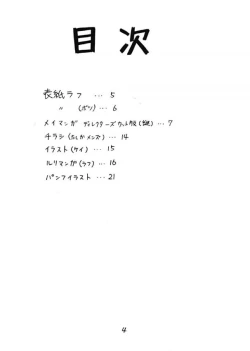 目次
表紙ラフ … 5
〃 (ボツ) … 6
メイマンガ ディレクターズカット版 (謎) … 7
チラシ (たしかメンズ) … 14
イラスト (ケイ) … 15
ルリマンガ (ラフ) … 16
パンフイラスト … 21
4